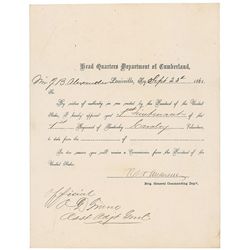 Head Quarters Department of Cumberland,
Mr. J B Alexander Louisville, Sept 23d 1861.
Sir:
By virtue of authority on me vested by the President of the United
States, I hereby appoint you 1st Lieutenant of the
1st Regiment of Kentucky Cavalry Volunteers,
to take date from the
In due season you will receive a Commission from the President of the
United States.
Robert Anderson
Brig. General Commanding Dep't.
Official
O. D. Greene
Asst Adjt Genl.